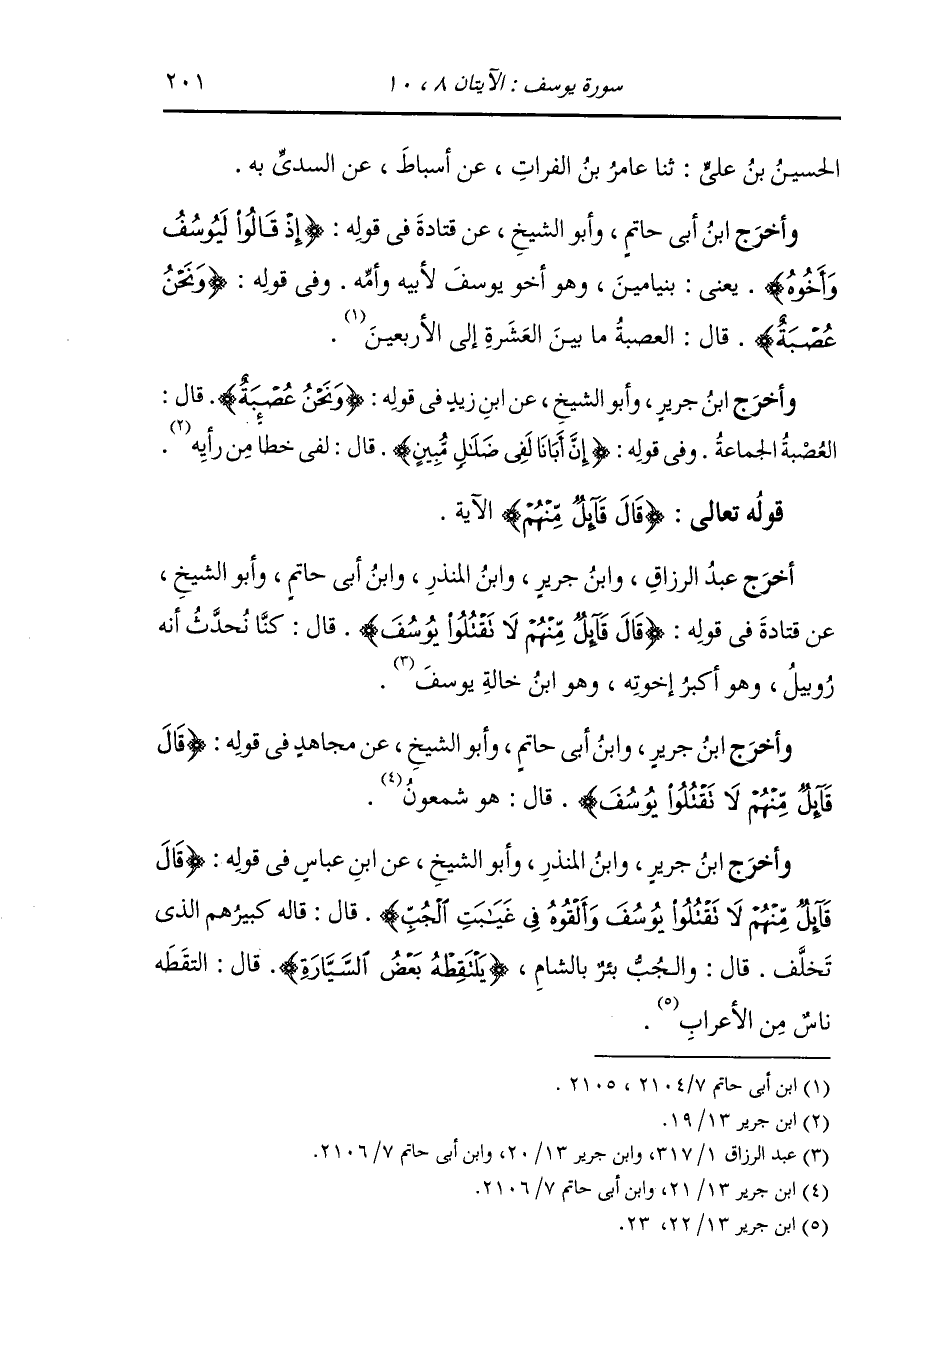 سورة يوسف : الآيتان ٨ ، ١٠ ٢٠١
الحسينُ بنُ عليٍّ : ثنا عامرُ بنُ الفراتِ ، عن أسباطَ ، عن السدىِّ به .
وأخرَج ابنُ أبى حاتمٍ ، وأبو الشيخِ ، عن قتادةَ فى قولِه : ﴿إِذْ قَالُواْ لَيُوسُفُ
وَأَخُوهُ﴾ . يعنى : بنيامينَ ، وهو أخو يوسفَ لأبيه وأمِّه . وفى قولِه : ﴿وَنَحْنُ
عُصْبَةٌ﴾ . قال : العصبةُ ما بينَ العَشَرةِ إلى الأربعينَ(١) .
وأخرَج ابنُ جريرٍ ، وأبو الشيخِ ، عن ابنِ زيدٍ فى قولِه : ﴿وَنَحْنُ عُصْبَةٌ﴾. قال :
العُصْبةُ الجماعةُ . وفى قولِه : ﴿إِنَّ أَبَانَا لَفِى ضَلَٰلٍ مُّبِينٍ﴾ . قال : لفى خطأً مِن رأيِه(٢) .
قولُه تعالى : ﴿قَالَ قَآئِلٌ مِّنْهُمْ﴾ الآية .
أخرَج عبدُ الرزاقِ ، وابنُ جريرٍ ، وابنُ المنذرِ ، وابنُ أبى حاتمٍ ، وأبو الشيخِ ،
عن قتادةَ فى قولِه : ﴿قَالَ قَآئِلٌ مِّنْهُمْ لَا نَقْتُلُواْ يُوسُفَ﴾ . قال : كنَّا نُحدَّثُ أنه
رُوبيلُ ، وهو أكبرُ إخوتِه ، وهو ابنُ خالةِ يوسفَ(٣) .
وأخرَج ابنُ جريرٍ ، وابنُ أبى حاتمٍ ، وأبو الشيخِ ، عن مجاهدٍ فى قولِه : ﴿قَالَ
قَآئِلٌ مِّنْهُمْ لَا نَقْتُلُواْ يُوسُفَ﴾ . قال : هو شمعونُ(٤) .
وأخرَج ابنُ جريرٍ ، وابنُ المنذرِ ، وأبو الشيخِ ، عن ابنِ عباسٍ فى قولِه : ﴿قَالَ
قَآئِلٌ مِّنْهُمْ لَا نَقْتُلُواْ يُوسُفَ وَأَلْقُوهُ فِى غَيَٰبَتِ ٱلْجُبِّ﴾ . قال : قاله كبيرُهم الذى
تَخلَّف . قال : والجُبُّ بئرٌ بالشامِ ، ﴿يَلْتَقِطْهُ بَعْضُ ٱلسَّيَّارَةِ﴾. قال : التقَطَه
ناسٌ مِن الأعرابِ(٥) .
(١) ابن أبى حاتم ٧/٢١٠٤ ، ٢١٠٥ .
(٢) ابن جرير ١٣/ ١٩.
(٣) عبد الرزاق ١/ ٣١٧، وابن جرير ١٣/ ٢٠، وابن أبى حاتم ٧/ ٢١٠٦.
(٤) ابن جرير ١٣/ ٢١، وابن أبى حاتم ٧/ ٢١٠٦.
(٥) ابن جرير ١٣/ ٢٢، ٢٣.